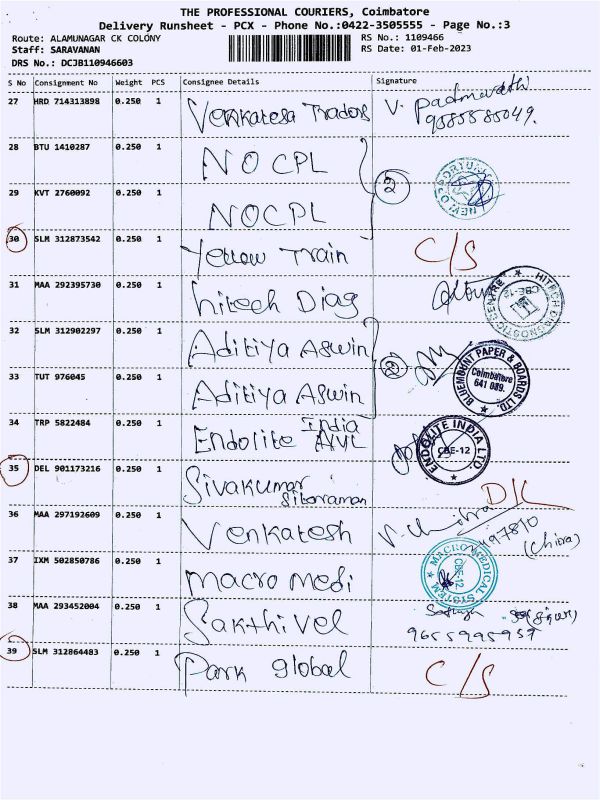 THE PROFESSIONAL COURIERS, Coimbatore
Delivery Runsheet - PCX - Phone No.:0422-3505555 - Page No.:3
Route: ALAMUNAGAR CK COLONY
Staff: SARAVANAN
DRS No.: DCJB110946603
RS No.: 1109466
RS Date: 01-Feb-2023
S No Consignment No Weight PCS Consignee Details Signature
27 HRD 714313898 0.250 1 Venkatesa Traders V. Padmavathi
9585585049.
28 BTU 1410287 0.250 1 NO CPL
2
29 KVT 2760092 0.250 1 NOCPL
30 SLM 312873542 0.250 1 Yellow Train C/S
31 MAA 292395730 0.250 1 hitech Diag
HITECH DIAGNOSTIC CENTRE CBE-12
32 SLM 312902297 0.250 1 Aditiya Aswin
2
BLUEMOUNT PAPER & BOARDS LTD.
Coimbatore
641 089.
33 TUT 976045 0.250 1 Aditiya Aswin
34 TRP 5822484 0.250 1 Endolite India
ENDOLITE INDIA LTD. CBE-12
35 DEL 901173216 0.250 1 Sivakumar
Sitaraman
36 MAA 297192609 0.250 1 Venkatesh
(Chitra)
37 IXM 502850786 0.250 1 macro medi
MACRO MEDICAL SYSTEM CBE-12
38 MAA 293452004 0.250 1 Sakthivel
9655995957
39 SLM 312864483 0.250 1 Park global C/S